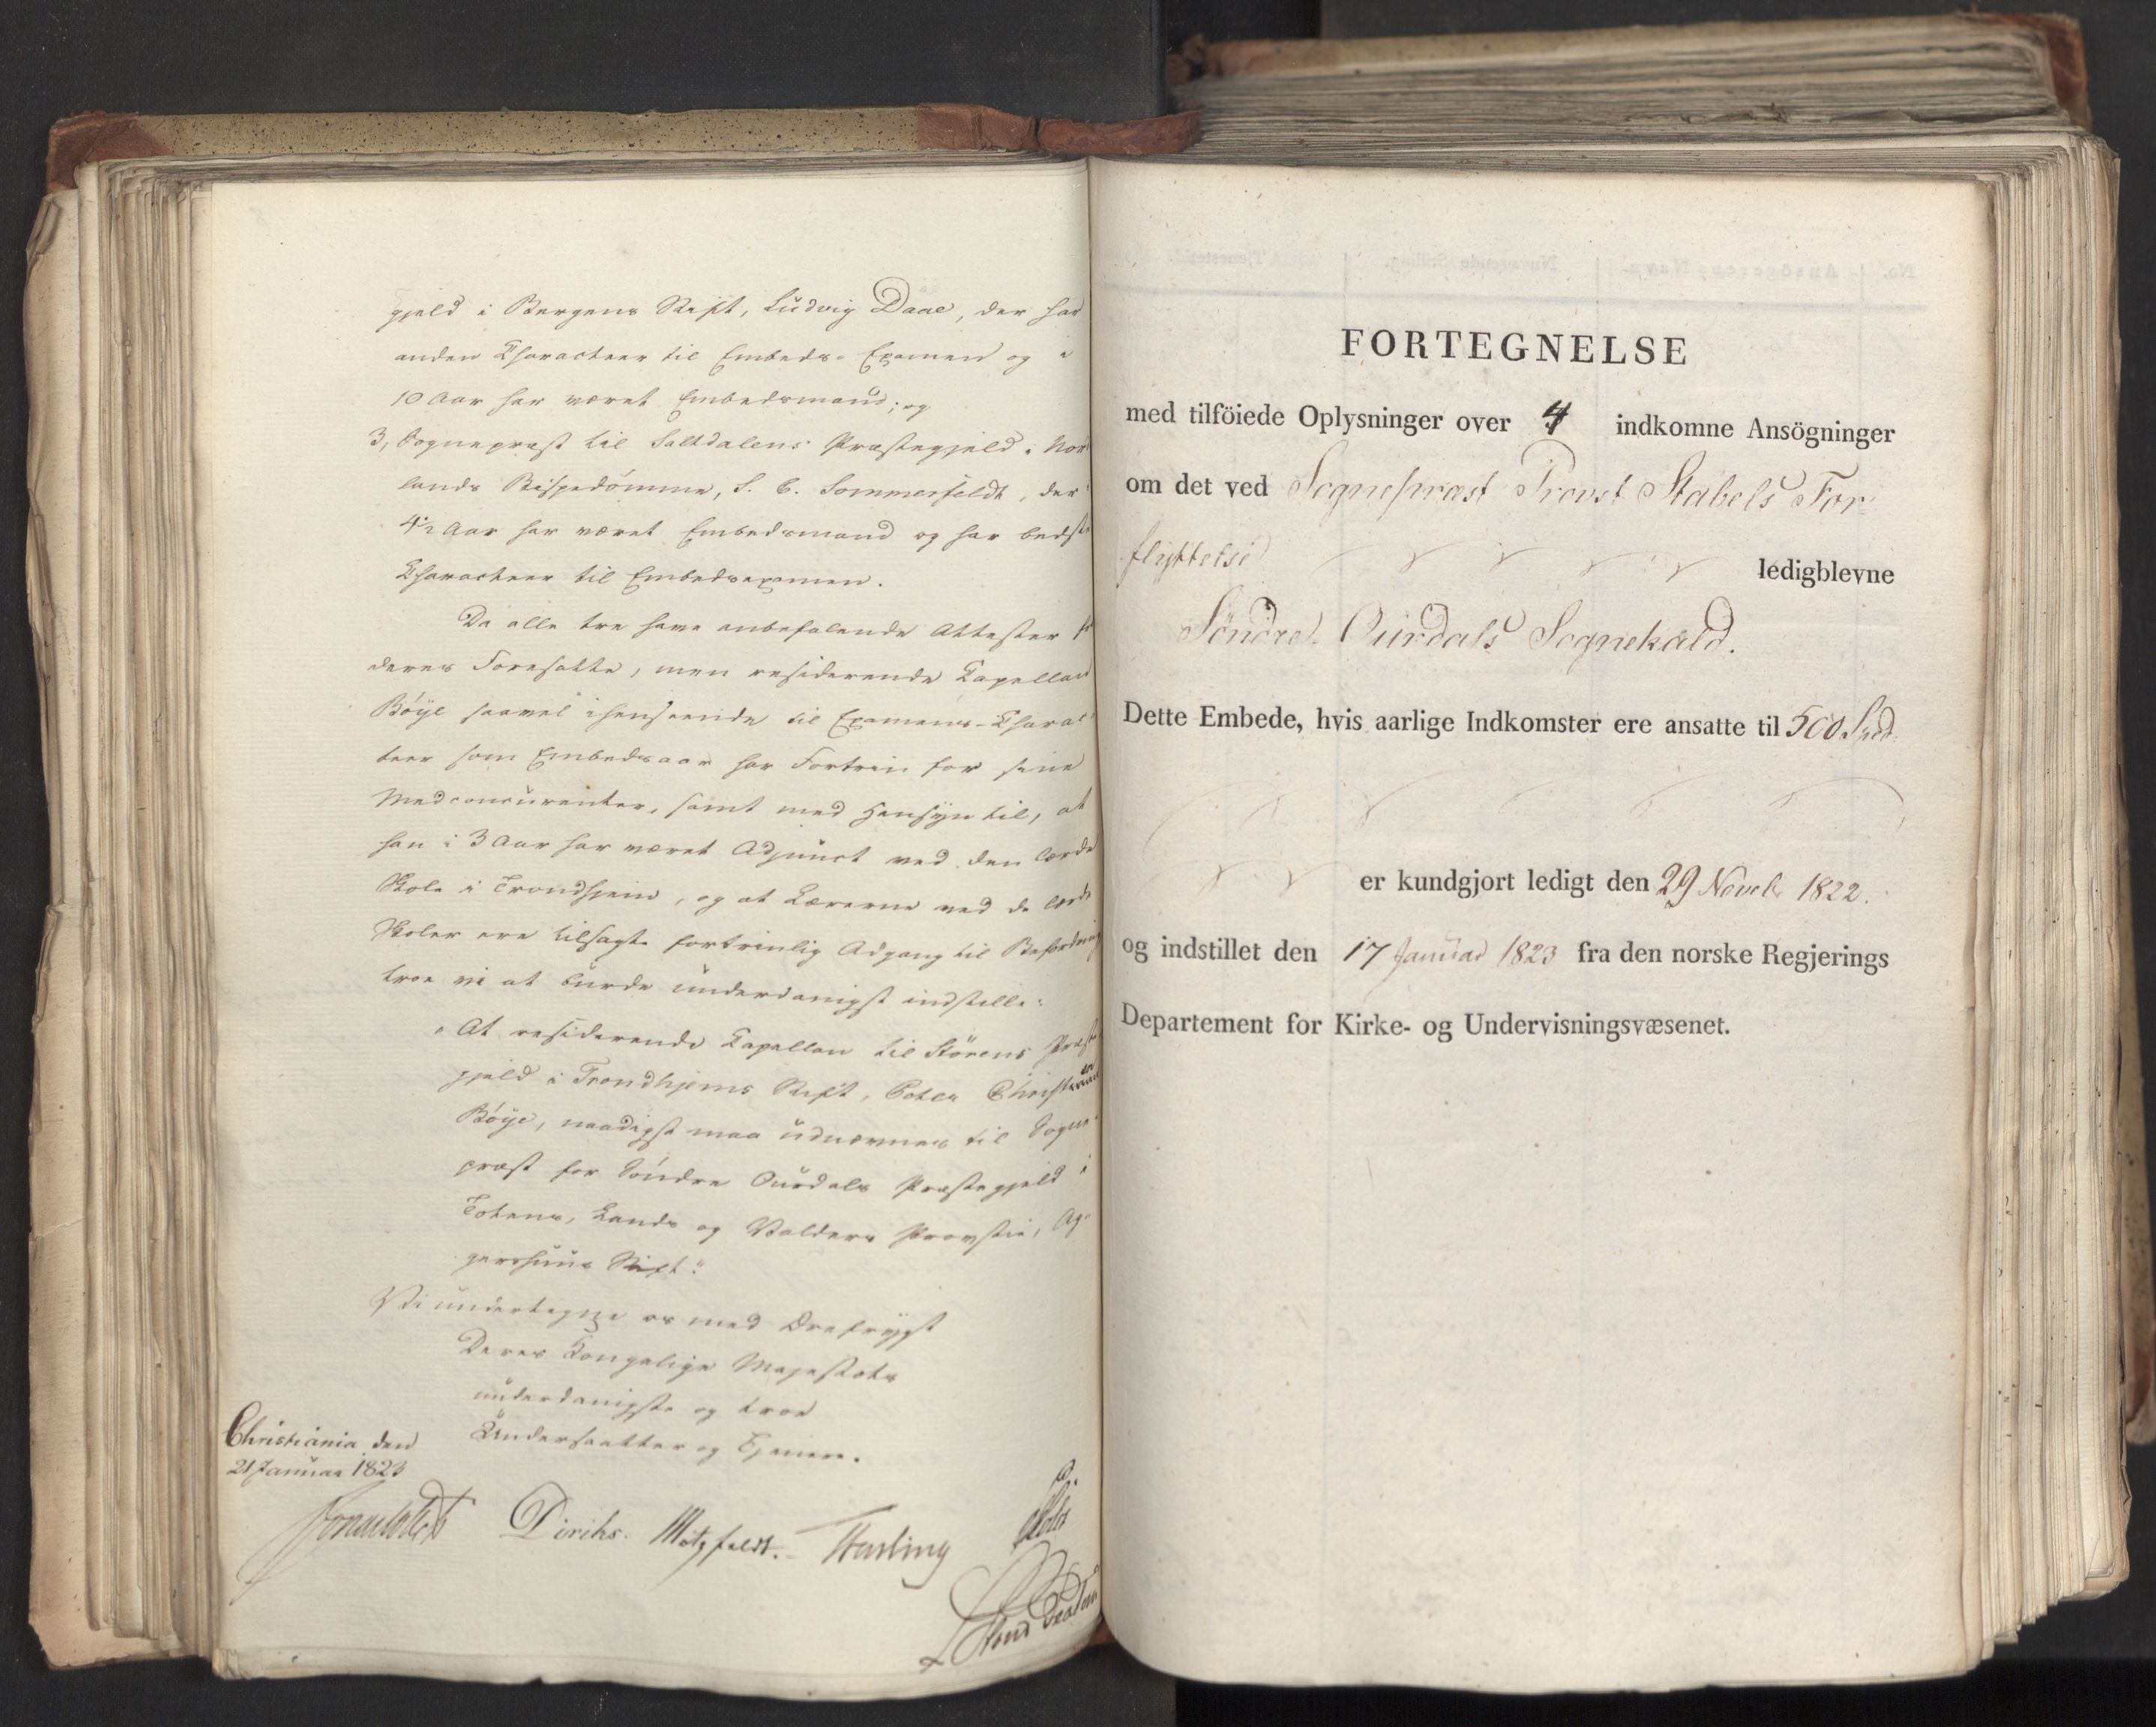 gjeld i Bergens Stift, Ludvig Daae, der har
anden Characteer til Embeds-Examen og i
10 Aar har været Embedsmand; og
3, Sognepræst til Saltdalens Præstegjeld i Nord
lands Bispedömme, S. C. Sommerfeldt, der
4½ Aar har været Embedsmand og har bedste
Characteer til Embedsexamen.
Da alle tre have anbefalende Attester fr
deres Foresatte, men residerende Capellan
Böye saavel ihenseende til Examens-Charac
teer som Embedsaar har Fortrin for sine
Medconcurenter, samt med Hensyn til, at
han i 3 Aar har været Adjunct ved den lærde
Skole i Trondhjem, og at Lærerne ved de lærde
Skoler ere tilsagte fortrinlig Adgang til Befordring
troe vi at burde underdanigst indstille:
"At residerende Capellan til Störens Præste
gjeld i Trondhjems Stift, Peter Christian
Böye, naadigst maa udnævnes til Sogne-
præst for Söndre Ourdals Præstegjeld i
Totens, Lands og Valders Provstie, Ag-
gershuus Stift."
Vi undertegne os med Ærefrygt
Deres Kongelige Majestæts
underdanigste og troe
Undersaatter og Tjenere.
Christiania den
21 Januar 1823
Diriks. Motzfeldt. Fasting
FORTEGNELSE
med tilföiede Oplysninger over 4 indkomne Ansögninger
om det ved Sognepræst Provst Stabels For
flyttelse ledigblevne
Söndre Ourdals Sognekald.
Dette Embede, hvis aarlige Indkomster ere ansatte til 500 Spd.
er kundgjort ledigt den 29 Novebr 1822.
og indstillet den 17 Januar 1823 fra den norske Regjerings
Departement for Kirke- og Undervisningsvæsenet.